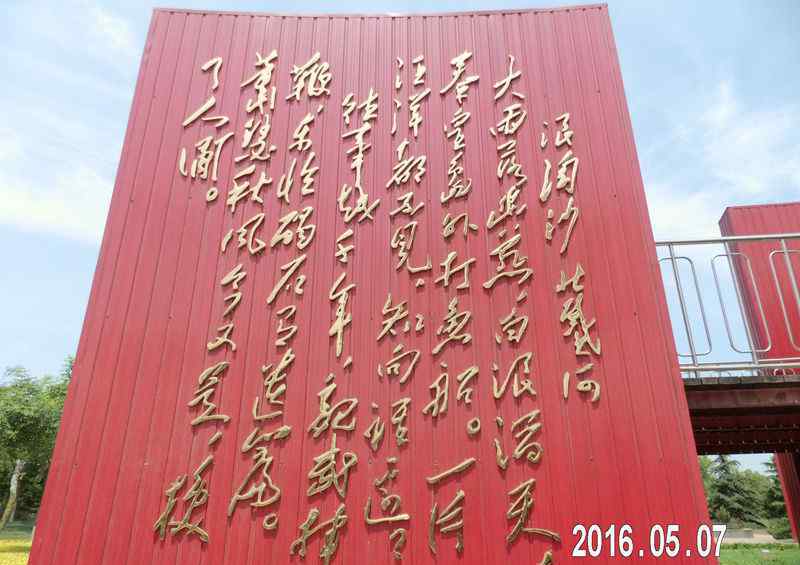 浪淘沙 北戴河
大雨落幽燕白浪滔天
秦皇岛外打鱼船。一片
汪洋都不见、知向谁边
往事越千年、魏武挥
鞭、东临碣石有遗篇。
萧瑟秋风今又是、换
了人间。
2016.05.07